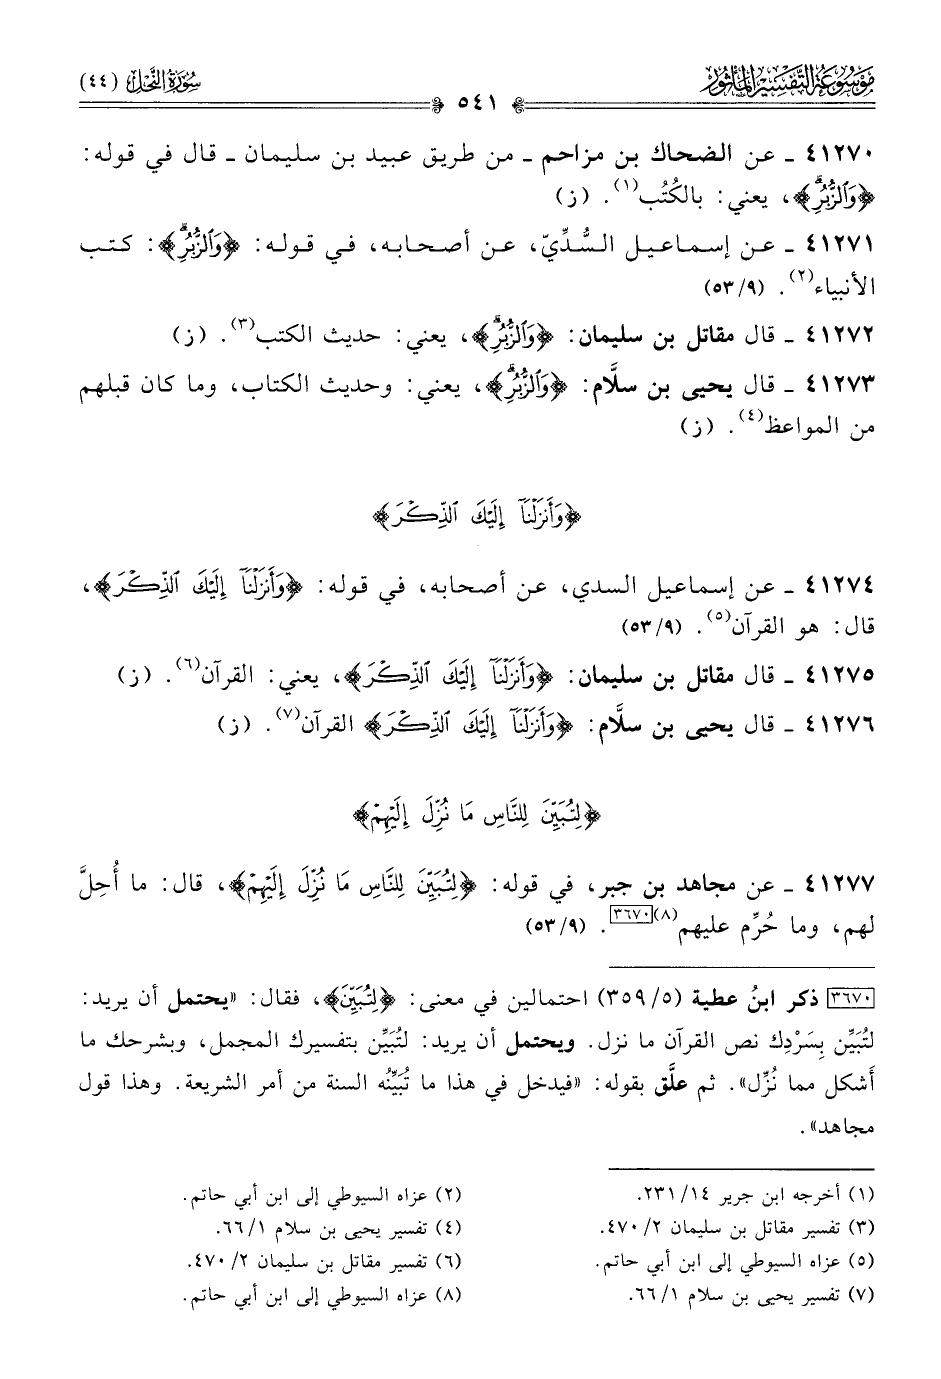 مَوْسُوعَة التَّفْسِير المَأْثُور
سُورَةُ النَّحْل (٤٤)
٥٤١
٤١٢٧٠ ـ عن الضحاك بن مزاحم ـ من طريق عبيد بن سليمان ـ قال في قوله:
﴿وَٱلزُّبُرِۗ﴾، يعني: بالكُتُب(١). (ز)
٤١٢٧١ ـ عن إسماعيل السُّدِّيّ، عن أصحابه، في قوله: ﴿وَٱلزُّبُرِۗ﴾: كتب
الأنبياء(٢). (٥٣/٩)
٤١٢٧٢ ـ قال مقاتل بن سليمان: ﴿وَٱلزُّبُرِۗ﴾، يعني: حديث الكتب(٣). (ز)
٤١٢٧٣ ـ قال يحيى بن سلَّام: ﴿وَٱلزُّبُرِۗ﴾، يعني: وحديث الكتاب، وما كان قبلهم
من المواعظ(٤). (ز)
﴿وَأَنزَلْنَآ إِلَيْكَ ٱلذِّكْرَ﴾
٤١٢٧٤ ـ عن إسماعيل السدي، عن أصحابه، في قوله: ﴿وَأَنزَلْنَآ إِلَيْكَ ٱلذِّكْرَ﴾،
قال: هو القرآن(٥). (٥٣/٩)
٤١٢٧٥ ـ قال مقاتل بن سليمان: ﴿وَأَنزَلْنَآ إِلَيْكَ ٱلذِّكْرَ﴾، يعني: القرآن(٦). (ز)
٤١٢٧٦ ـ قال يحيى بن سلَّام: ﴿وَأَنزَلْنَآ إِلَيْكَ ٱلذِّكْرَ﴾ القرآن(٧). (ز)
﴿لِتُبَيِّنَ لِلنَّاسِ مَا نُزِّلَ إِلَيْهِمْ﴾
٤١٢٧٧ ـ عن مجاهد بن جبر، في قوله: ﴿لِتُبَيِّنَ لِلنَّاسِ مَا نُزِّلَ إِلَيْهِمْ﴾، قال: ما أُحِلَّ
لهم، وما حُرِّم عليهم(٨)[٣٦٧٠]. (٥٣/٩)
[٣٦٧٠] ذكر ابنُ عطية (٣٥٩/٥) احتمالين في معنى: ﴿لِتُبَيِّنَ﴾، فقال: «يحتمل أن يريد:
لتُبَيِّن بِسَرْدِك نص القرآن ما نزل. ويحتمل أن يريد: لتُبَيِّن بتفسيرك المجمل، وبشرحك ما
أَشكل مما نُزِّل». ثم علَّق بقوله: «فيدخل في هذا ما تُبَيِّنُه السنة من أمر الشريعة. وهذا قول
مجاهد».
(١) أخرجه ابن جرير ٢٣١/١٤.
(٢) عزاه السيوطي إلى ابن أبي حاتم.
(٣) تفسير مقاتل بن سليمان ٤٧٠/٢.
(٤) تفسير يحيى بن سلام ٦٦/١.
(٥) عزاه السيوطي إلى ابن أبي حاتم.
(٦) تفسير مقاتل بن سليمان ٤٧٠/٢.
(٧) تفسير يحيى بن سلام ٦٦/١.
(٨) عزاه السيوطي إلى ابن أبي حاتم.